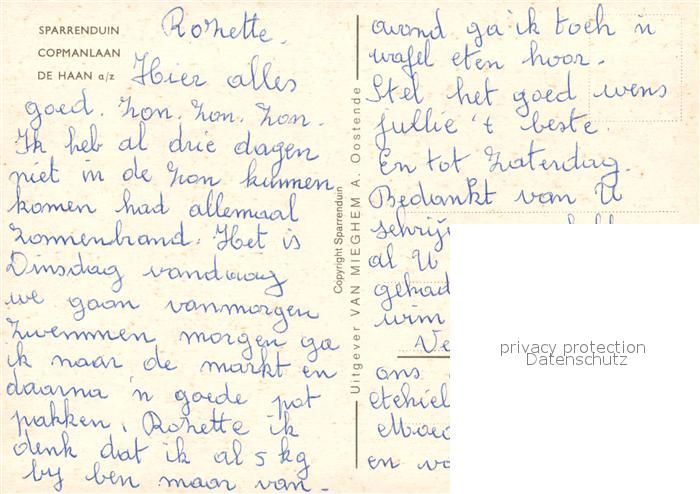 SPARRENDUIN
COPMANLAAN
DE HAAN a/z
Ronette.
Hier alles
goed. Zon. Zon. Zon.
Ik heb al drie dagen
niet in de zon kunnen
komen had allemaal
zonnenbrand. Het is
Dinsdag vandaag
we gaan vanmorgen
zwemmen morgen ga
ik naar de markt en
daarna 'n goede pot
pakken. Ronette ik
denk dat ik al 5 kg
by ben maar van-
Copyright Sparrenduin
Uitgever VAN MIEGHEM A. Oostende
avond ga ik toch 'n
wafel eten hoor.
Stel het goed wens
jullie 't beste.
En tot Zaterdag.
Bedankt van U
al U
gehad
wim
Ve
ons
en
privacy protection
Datenschutz